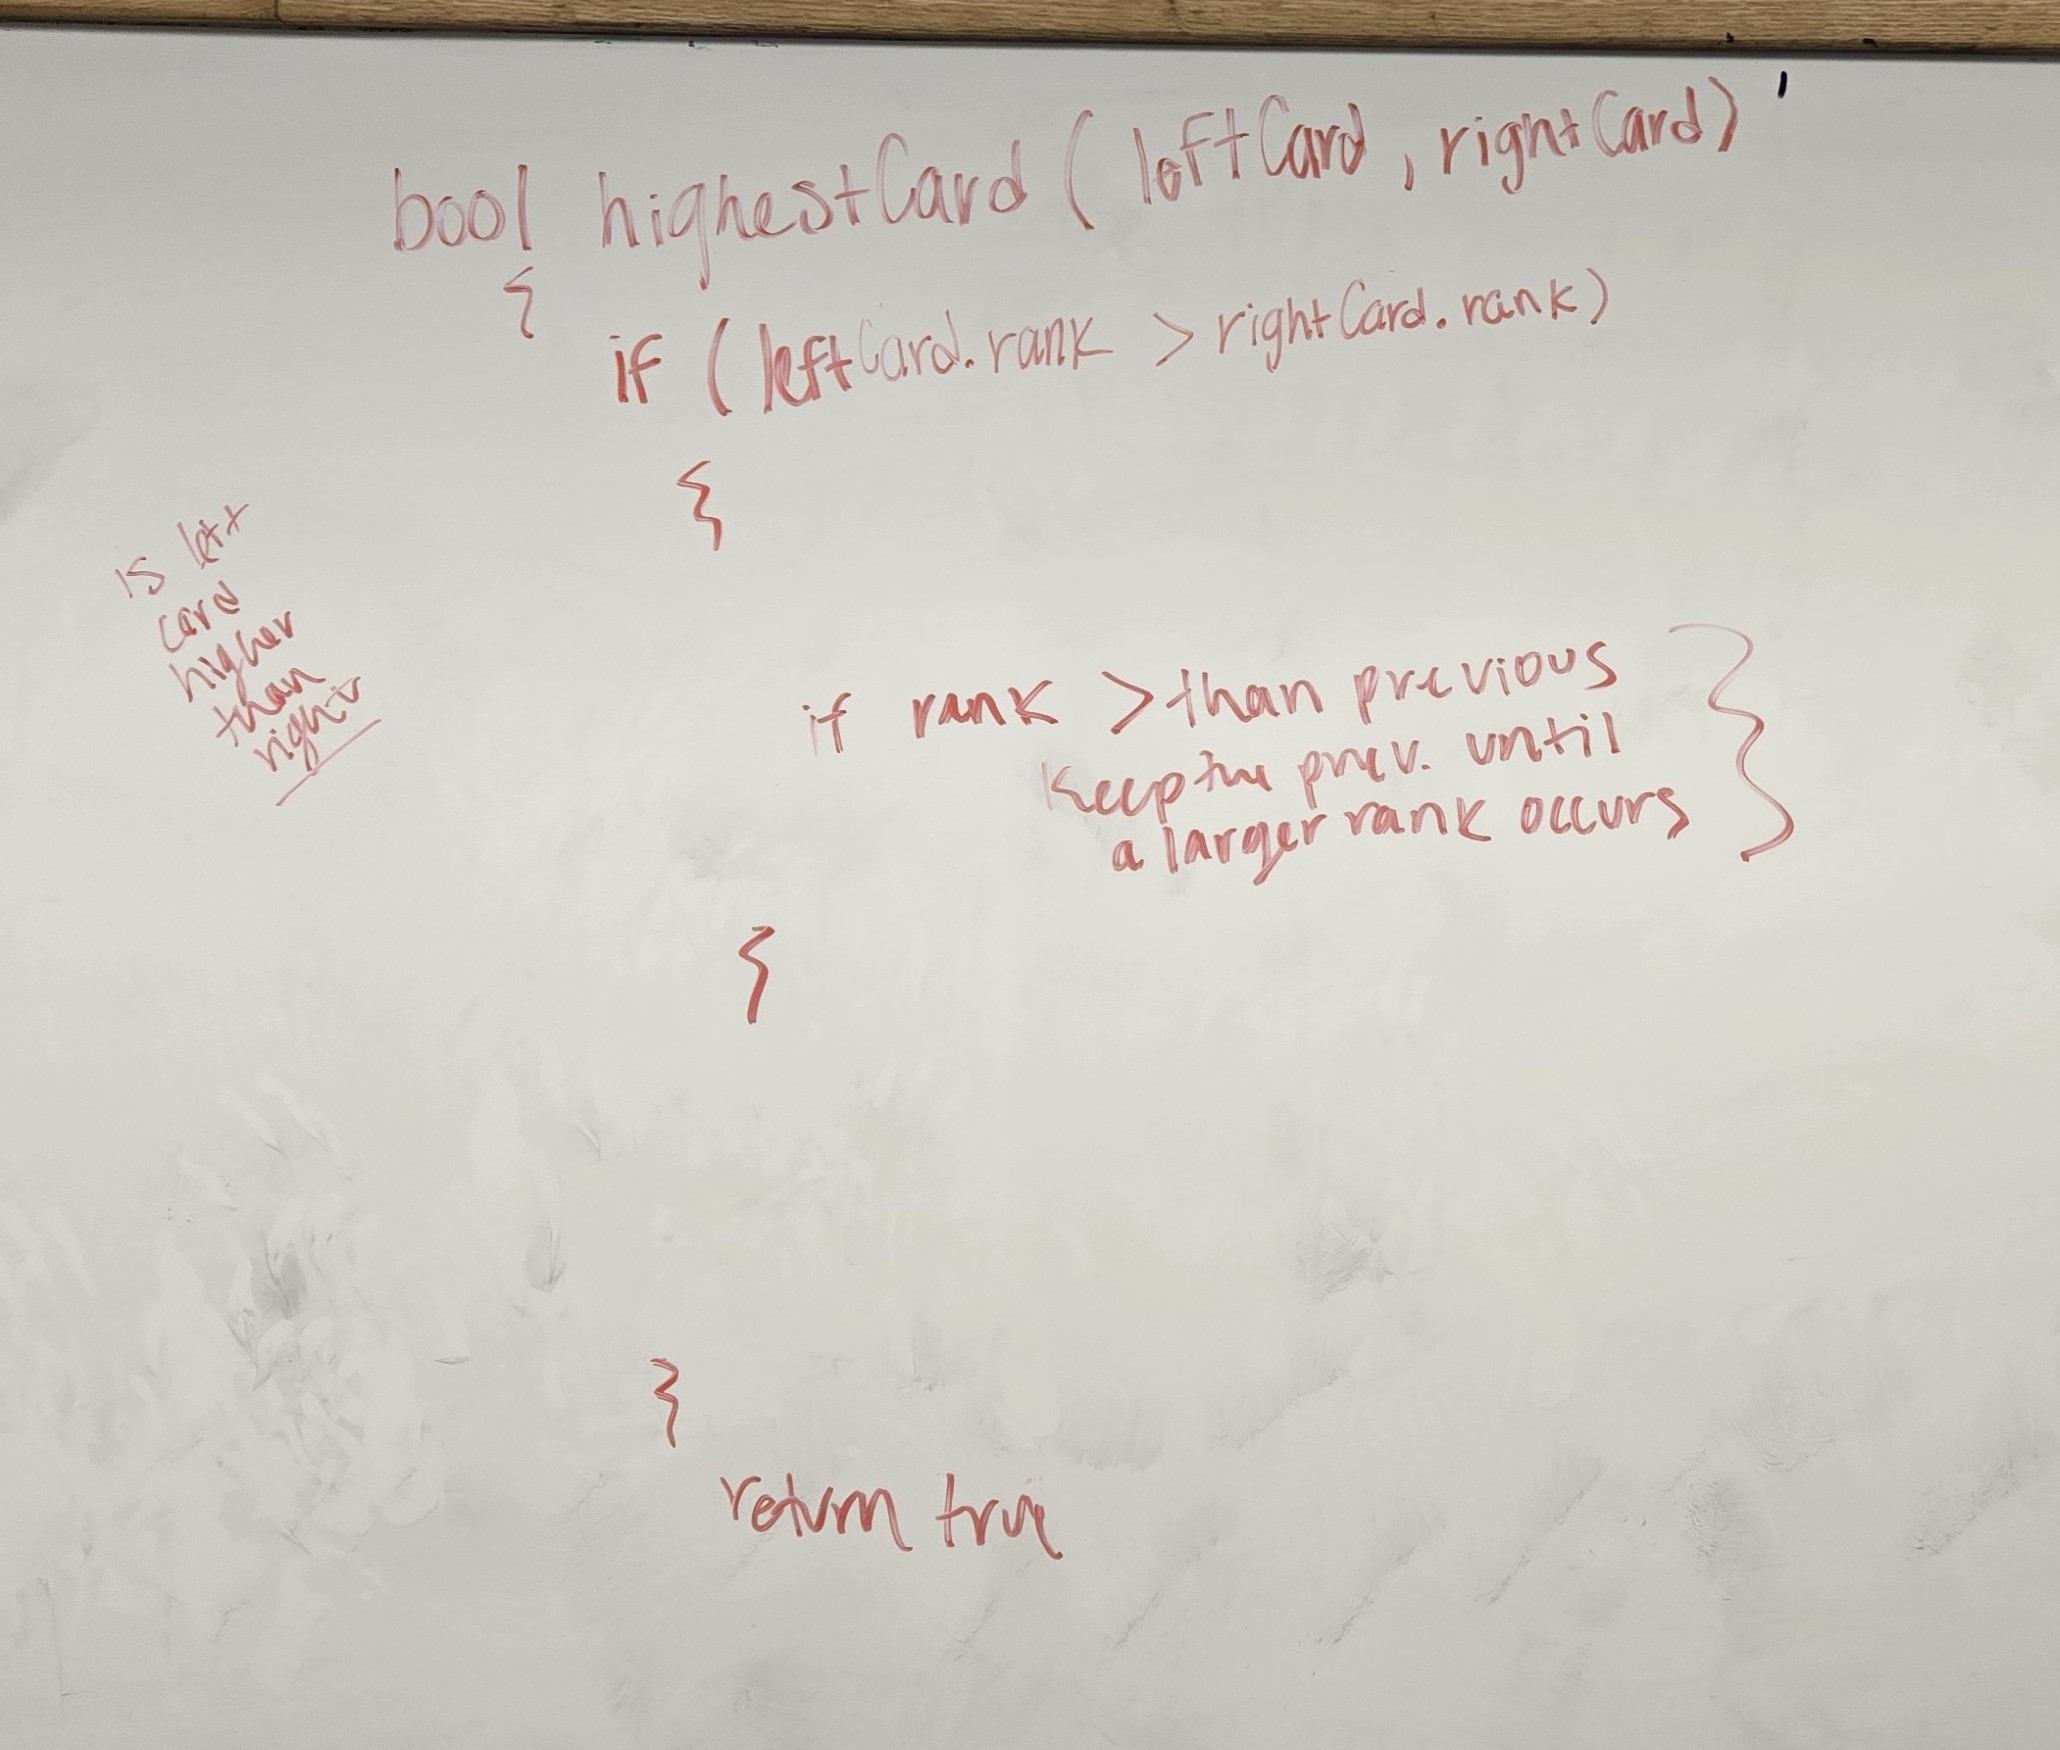 bool highestCard ( leftCard , rightCard)
{
if ( leftCard.rank > rightCard.rank)
{
is left
card
higher
than
right
if rank > than previous }
keep the prev. until
a larger rank occurs
{
}
return true